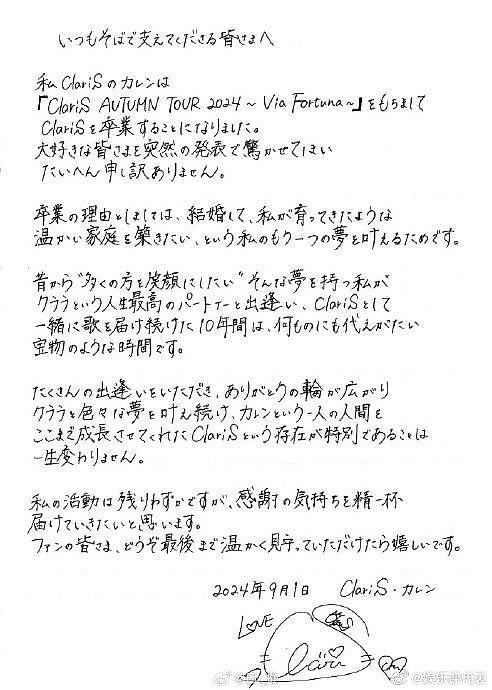 いつもそばで支えてくださる皆さまへ
私 ClariSのカレンは
「ClariS AUTUMN TOUR 2024 ~ Via Fortuna ~」をもちまして
ClariSを卒業することになりました。
大好きな皆さまを突然の発表で驚かせてしまい
たいへん申し訳ありません。
卒業の理由としましては、結婚して、私が育ってきたような
温かい家庭を築きたい、という私のもう一つの夢を叶えるためです。
昔から"多くの方を笑顔にしたい"そんな夢を持つ私が
クララという人生最高のパートナーと出逢い、ClariSとして
一緒に歌を届け続けた10年間は、何ものにも代えがたい
宝物のような時間です。
たくさんの出逢いをいただき、ありがとうの輪が広がり
クララと色々な夢を叶え続け、カレンという一人の人間を
ここまで成長させてくれたClariSという存在が特別であることは
一生変わりません。
私の活動は残りわずかですが、感謝の気持ちを精一杯
届けていきたいと思います。
ファンの皆さま、どうぞ最後まで温かく見守っていただけたら嬉しいです。
2024年9月1日 ClariS・カレン
LOVE
@娱乐课代表